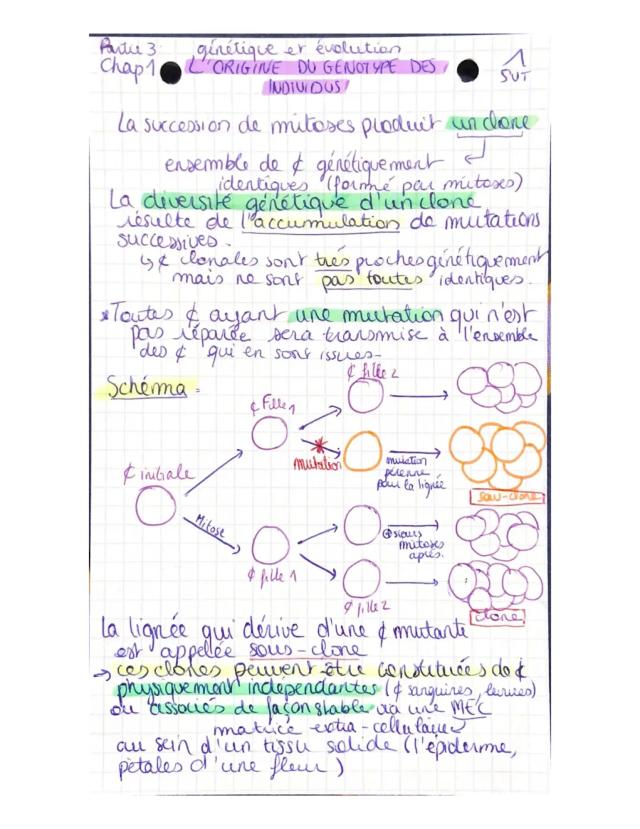 Partie 3 génétique et évolution
Chap 1 L'ORIGINE DU GÉNOTYPE DES
INDIVIDUS
1
SVT
La succession de mitoses produit un clone
ensemble de ¢ génétiquement
identiques (formé par mitoses)
La diversité génétique d'un clone
résulte de l'accumulation de mutations
successives.
↳ ¢ clonales sont très proches génétiquement
mais ne sont pas toutes identiques.
* Toutes ¢ ayant une mutation qui n'est
pas réparée sera transmise à l'ensemble
des ¢ qui en sont issues.
Schéma :
¢ initiale
Mitose
¢ Fille 1
¢ fille 2
mutation
mutation
pérenne
pour la lignée
sous-clone
⊕sieurs
mitoses
après.
¢ fille 1
¢ fille 2
clone
La lignée qui dérive d'une ¢ mutante
est appelée sous-clone
→ ces clones peuvent être constituées de ¢
physiquement indépendantes (¢ sanguines, levures)
ou associés de façon stable via une MEC
matrice extra-cellulaire
au sein d'un tissu solide (l'épiderme,
pétales d'une fleur)